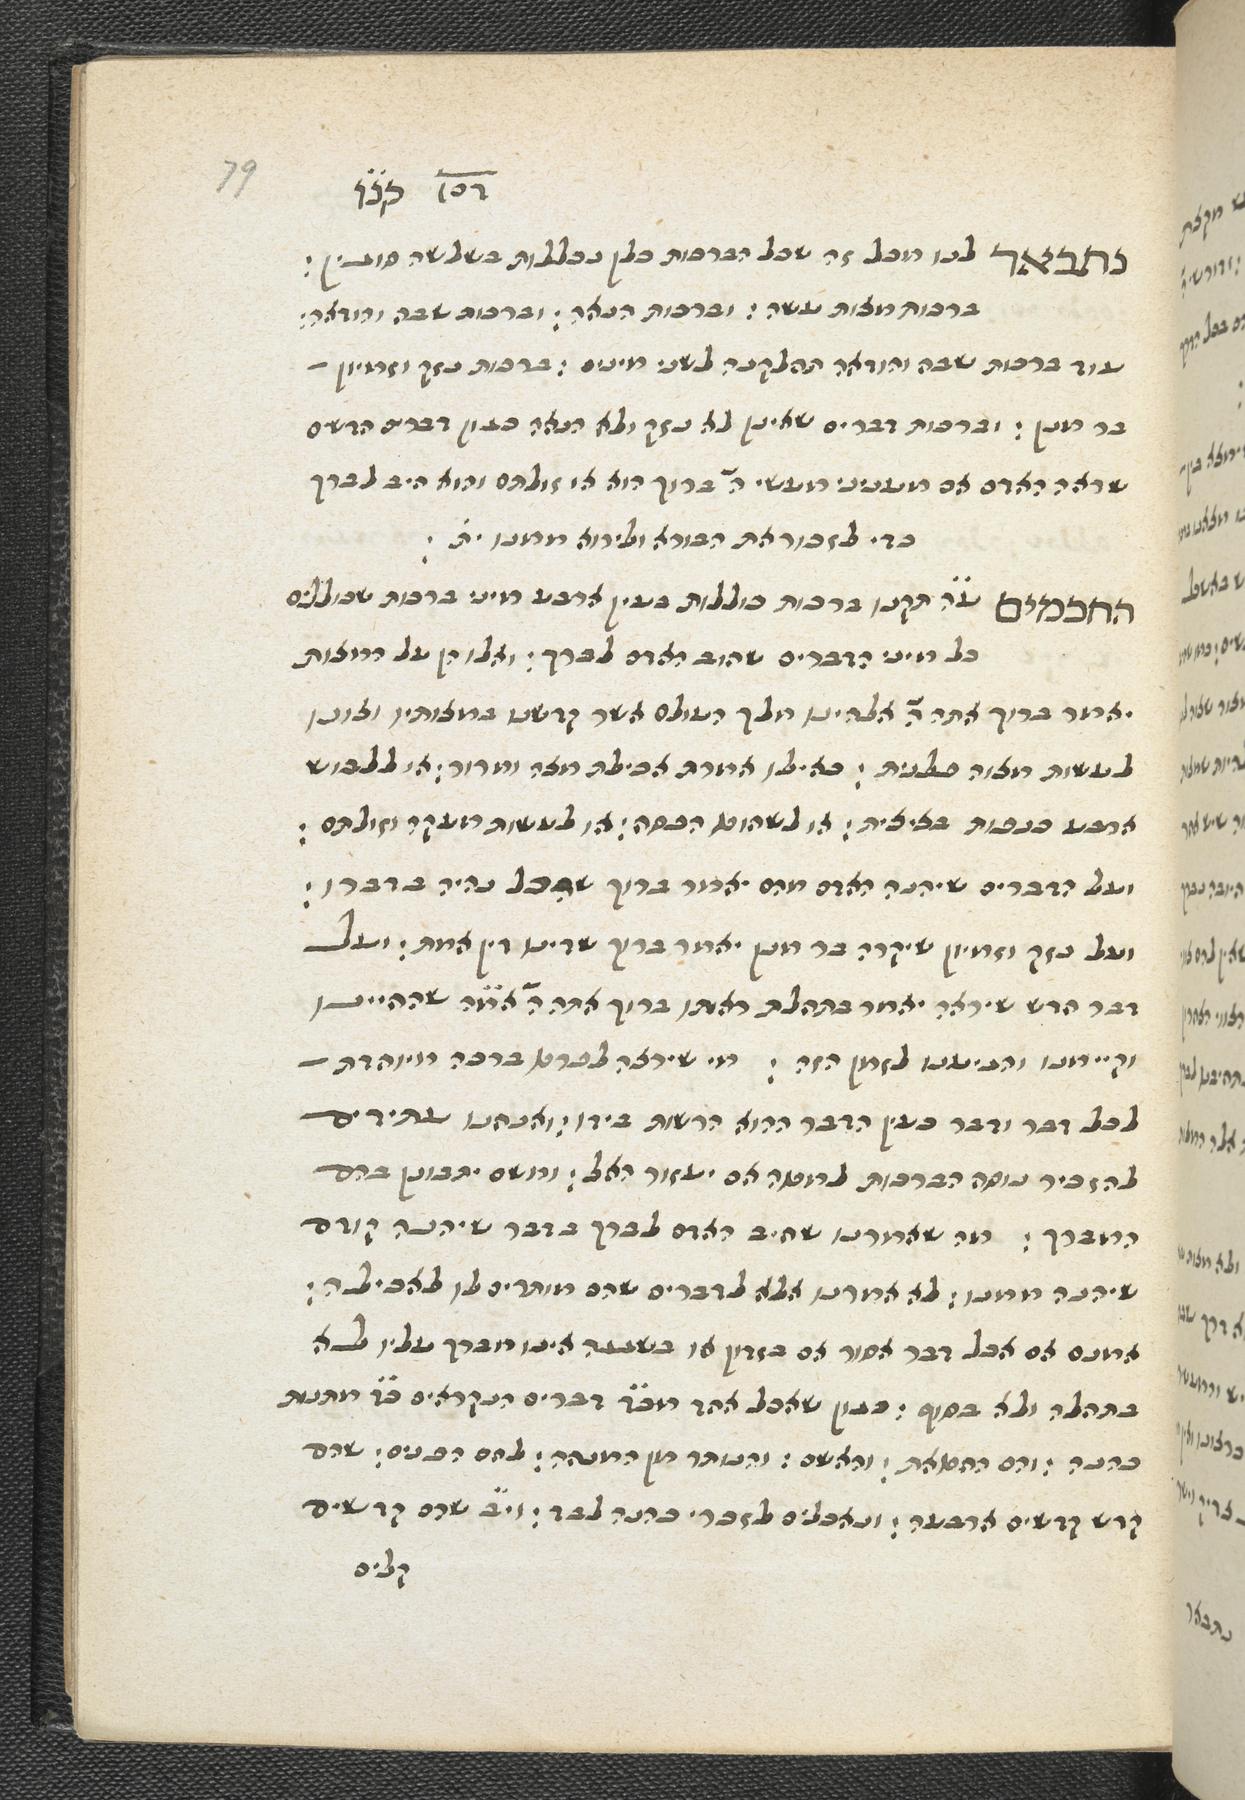 79
נתבאר לנו מכל זה שכל הברכות כלן נכללות בשלשה סוגין :
ברכות מצות עשה : וברכות הנאה : וברכות שבח והודאה :
עוד ברכות שבח והודאה תחלקנה לשני מינים : ברכות נזק וזמיון –
בר מנן : וברכות דברים שאינן לא נזק ולא הנאה כגון דברים חדשים
שראה האדם או מענייני מעשי ה' ברוך הוא או זולתם והוא חיב לברך
כדי לזכור את הבורא ולירוא ממנו ית' :
החכמים ע"ה תקנו ברכות כוללות בעין ארבע מיני ברכות שכוללים
כל מיני הדברים שחוב האדם לברך : ואלו הן על המצות
יאמר ברוך אתה ה' אלהינו מלך העולם אשר קדשנו במצותיו וצונו
לעשות מצוה פלנית : כאילו אמרת אכילת מצה ומרור : או ללבוש
ארבע כנפות בציצית : או לשחוט הפסח : או לעשות מעקה וזולתם :
ועל הדברים שיהנה האדם מהם יאמר ברוך שהכל נהיה בדברו :
ועל נזק וזמיון שיקרה בר מנן יאמר ברוך שדינו דין אמת : ועל
דבר חדש שיראה יאמר בתחלת ראותו ברוך אתה ה' אמ"ה שהחיינו
וקיימנו והגיענו לזמן הזה : מי שירצה לפרט ברכה מיוחדת –
לכל דבר ודבר כעין הדבר ההוא הרשות בידו : ואנחנו עתידים
להזכיר נוסח הברכות למטה אם יעזור האל : ומשם יתבונן בהם
המברך : מה שאמרנו שחיב האדם לברך בדבר שיהנה קודם
שיהנה ממנו : לא אמרנו אלא לדברים שהם מותרים לו לאכילה :
אמנם אם אכל דבר אסור אם בזדון או בשגגה אינו מברך עליו לא
בתחלה ולא בסוף : כגון שאכל אחד מכ"ד דברים הנקראים כ"ד מתנות
כהנה : והם החטאת : והאשם : והנותר מן המנחה : לחם הפנים : שהם
קדש קדשים ארבעה : ונאכלים לזכרי כהנה לבד : וי"ב שהם קדשים
קלים